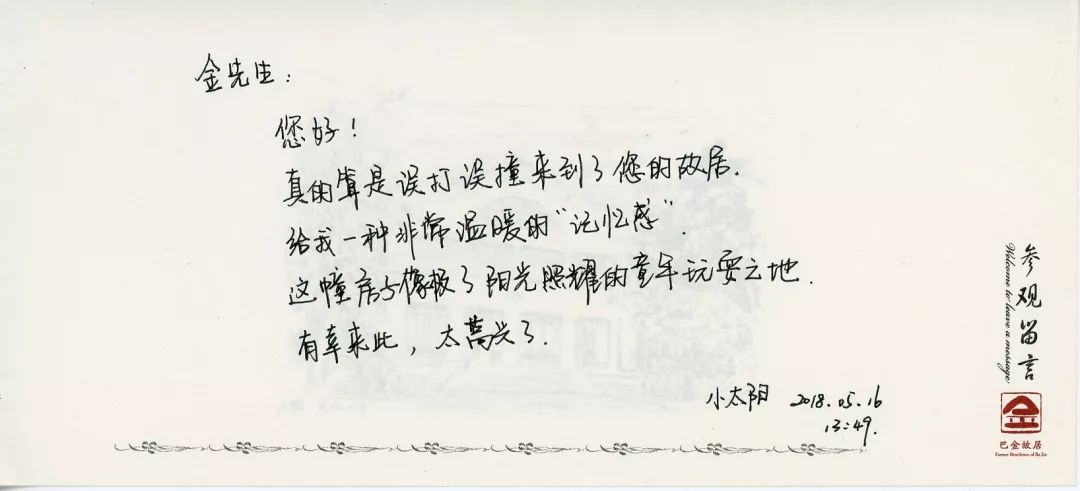 金先生：
您好！
真的算是误打误撞来到了您的故居.
给我一种非常温暖的“记忆感”.
这幢房子像极了阳光照耀的童年玩耍之地.
有幸来此，太高兴了.
小太阳 2018.05.16
13:49.
参观留言
Welcome to leave a message
巴金故居
Former Residence of Ba Jin